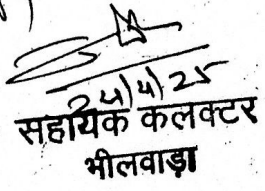 24/4/25
सहायक कलक्टर
भीलवाड़ा